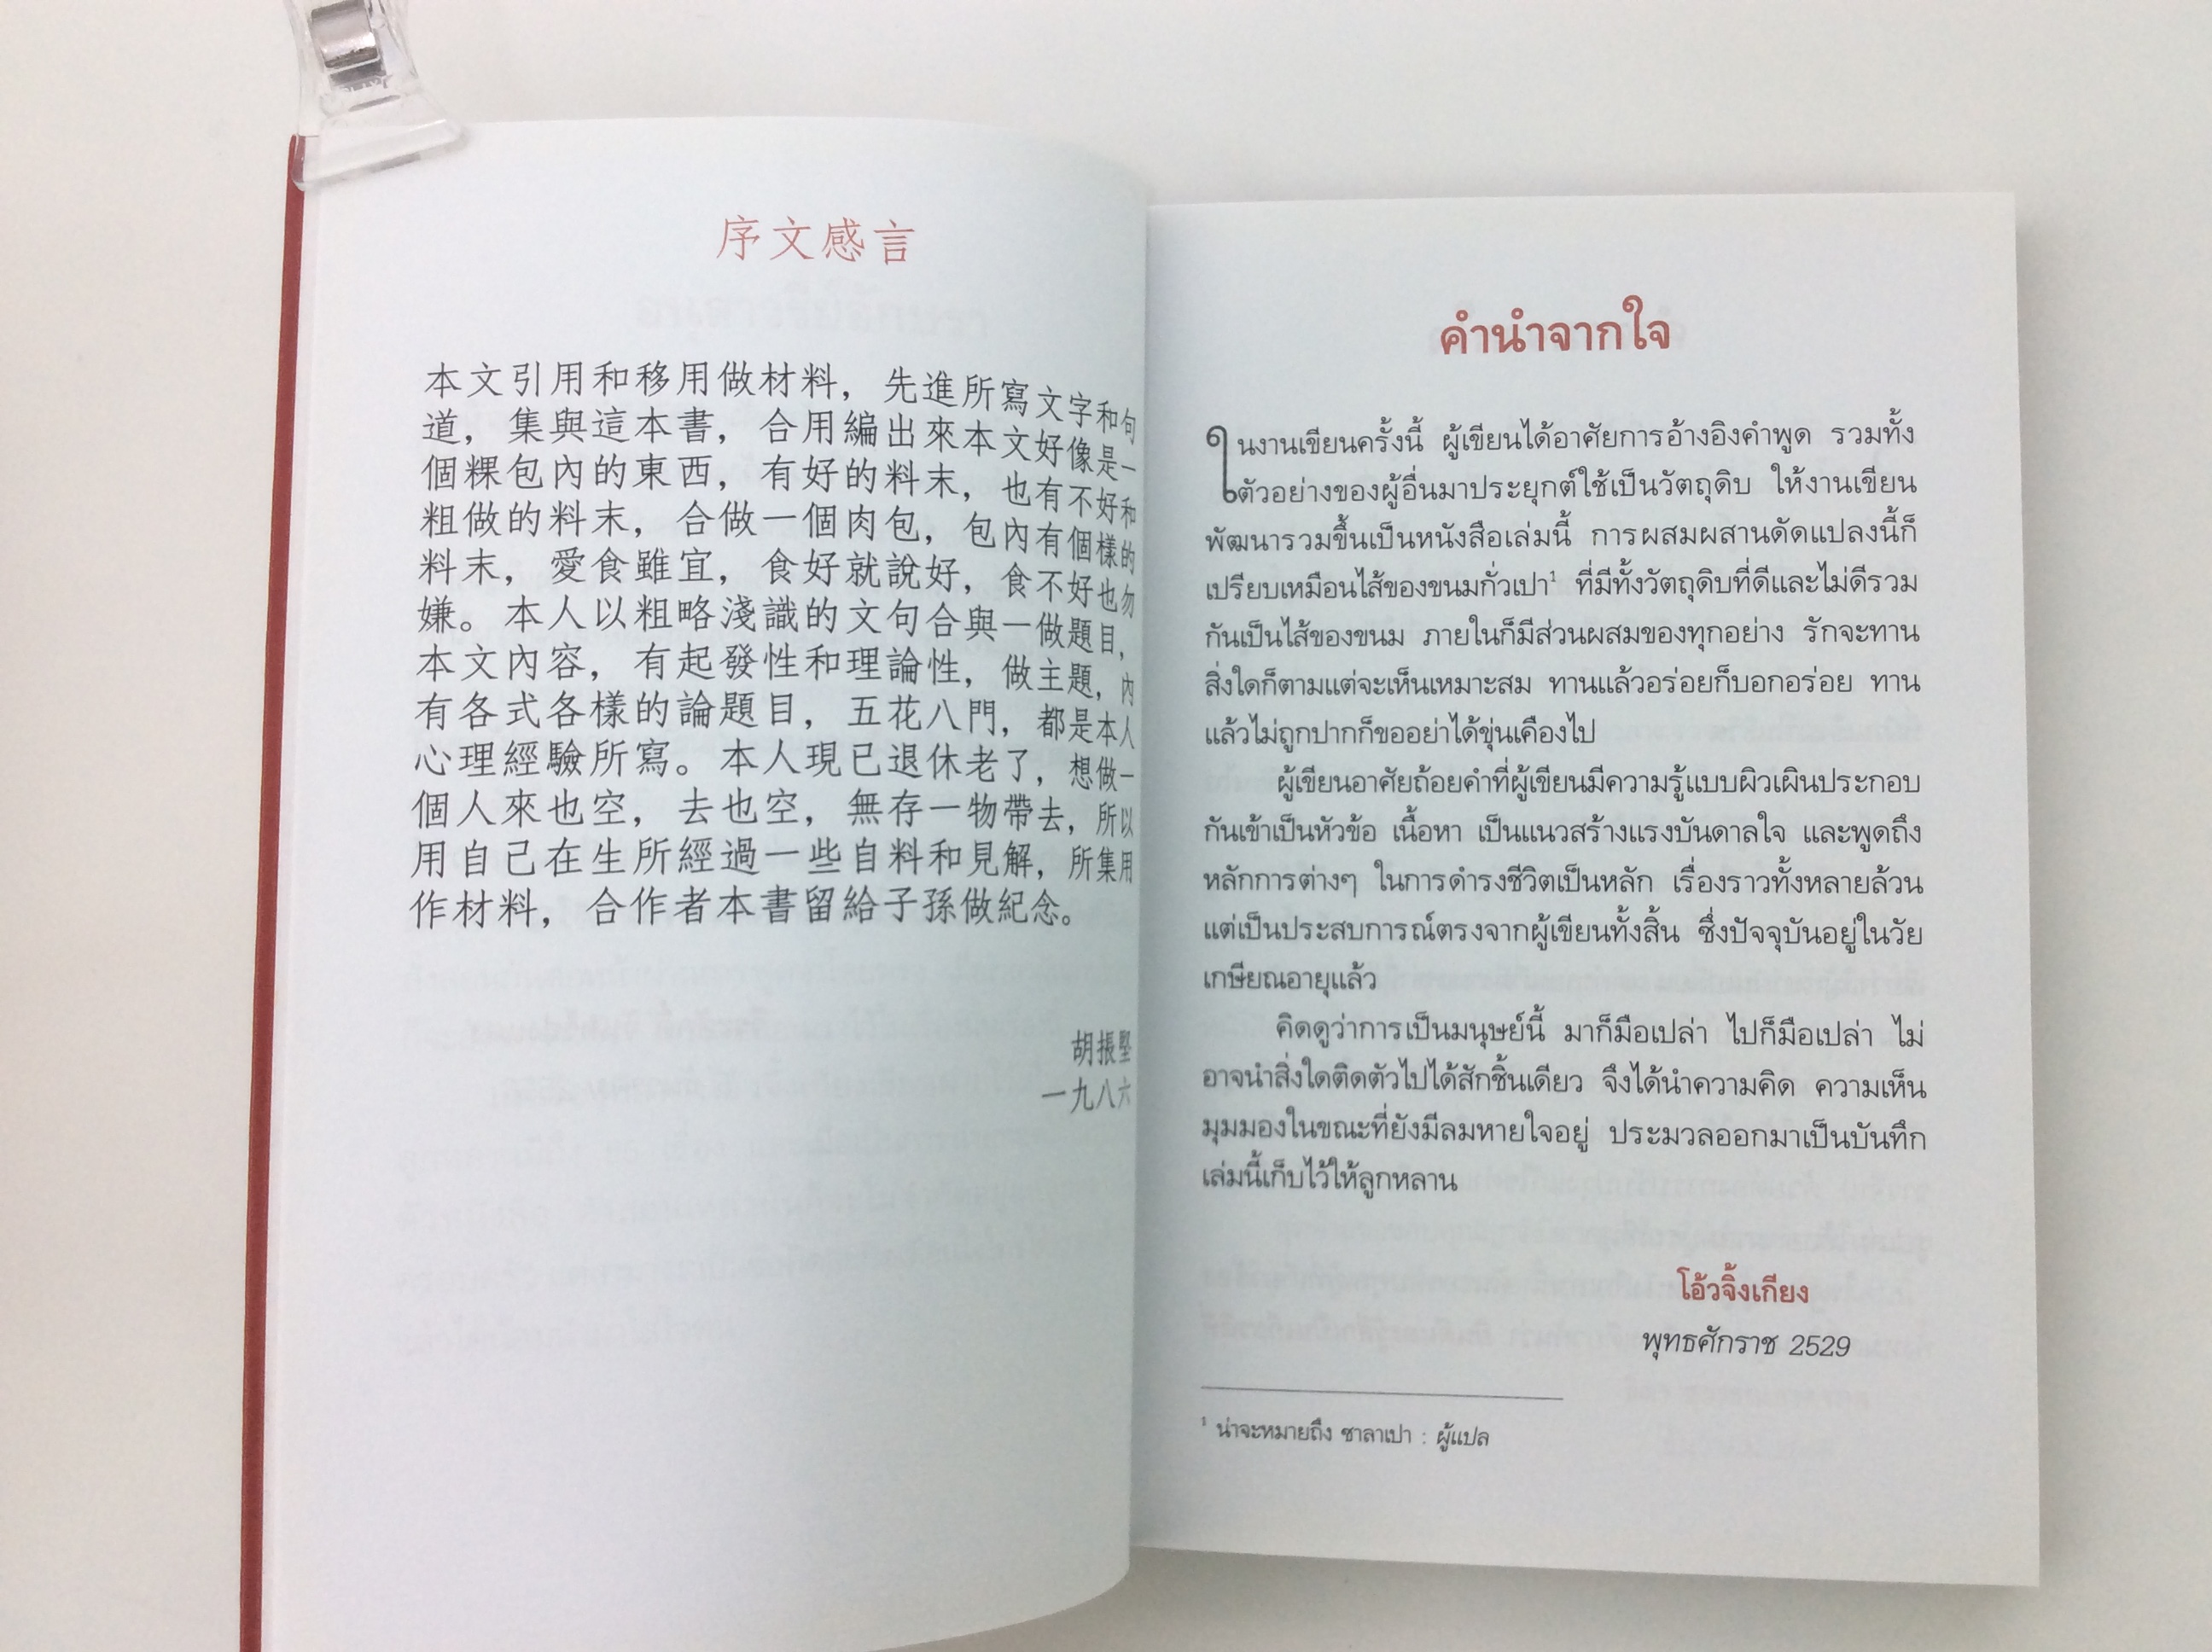 序文感言
本文引用和移用做材料，先進所寫文字和句
道，集與這本書，合用編出來本文好像是一
個粿包內的東西，有好的料末，也有不好和
粗做的料末，合做一個肉包，包內有個樣的
料末，愛食雖宜，食好就說好，食不好也勿
嫌。本人以粗略淺識的文句合與一做題目，
本文內容，有起發性和理論性，做主題，內
有各式各樣的論題目，五花八門，都是本人
心理經驗所寫。本人現已退休老了，想做一
個人來也空，去也空，無存一物帶去，所以
用自己在生所經過一些自料和見解，所集用
作材料，合作者本書留給子孫做紀念。
胡振堅
一九八六
คำนำจากใจ
ในงานเขียนครั้งนี้ ผู้เขียนได้อาศัยการอ้างอิงคำพูด รวมทั้ง
ตัวอย่างของผู้อื่นมาประยุกต์ใช้เป็นวัตถุดิบ ให้งานเขียน
พัฒนารวมขึ้นเป็นหนังสือเล่มนี้ การผสมผสานดัดแปลงนี้ก็
เปรียบเหมือนไส้ของขนมกั่วเปา¹ ที่มีทั้งวัตถุดิบที่ดีและไม่ดีรวม
กันเป็นไส้ของขนม ภายในก็มีส่วนผสมของทุกอย่าง รักจะทาน
สิ่งใดก็ตามแต่จะเห็นเหมาะสม ทานแล้วอร่อยก็บอกอร่อย ทาน
แล้วไม่ถูกปากก็ขออย่าได้ขุ่นเคืองไป
ผู้เขียนอาศัยถ้อยคำที่ผู้เขียนมีความรู้แบบผิวเผินประกอบ
กันเข้าเป็นหัวข้อ เนื้อหา เป็นแนวสร้างแรงบันดาลใจ และพูดถึง
หลักการต่างๆ ในการดำรงชีวิตเป็นหลัก เรื่องราวทั้งหลายล้วน
แต่เป็นประสบการณ์ตรงจากผู้เขียนทั้งสิ้น ซึ่งปัจจุบันอยู่ในวัย
เกษียณอายุแล้ว
คิดดูว่าการเป็นมนุษย์นี้ มาก็มือเปล่า ไปก็มือเปล่า ไม่
อาจนำสิ่งใดติดตัวไปได้สักชิ้นเดียว จึงได้นำความคิด ความเห็น
มุมมองในขณะที่ยังมีลมหายใจอยู่ ประมวลออกมาเป็นบันทึก
เล่มนี้เก็บไว้ให้ลูกหลาน
โอ้วจิ้งเกียง
พุทธศักราช 2529
¹ น่าจะหมายถึง ซาลาเปา : ผู้แปล